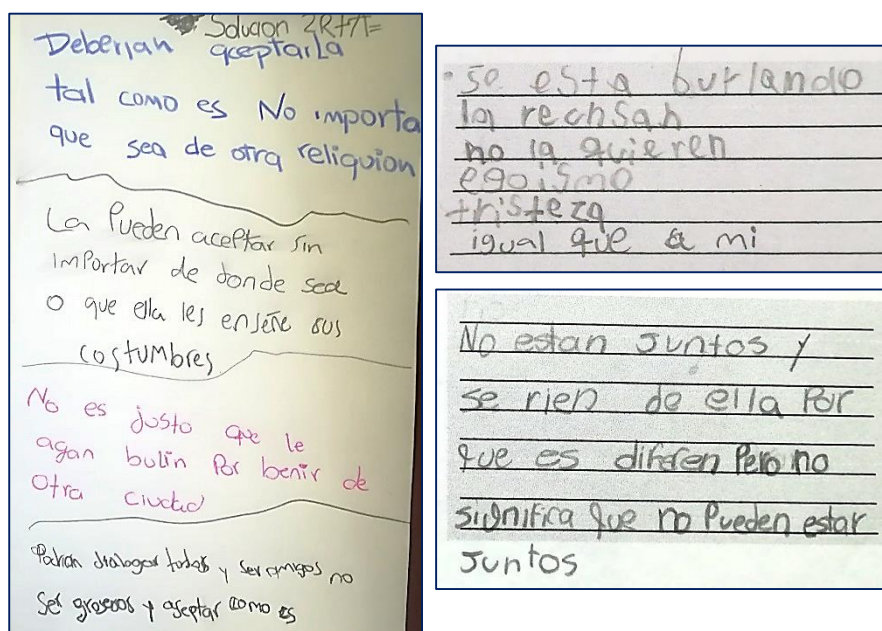 Solucion 2R+A=
Deberian aceptarla
tal como es No importa
que sea de otra reliquion
La Pueden aceptar sin
importar de donde sea
o que ella les enseñe sus
costumbres
No es justo que le
agan bulin Por benir de
otra ciudad
Podrian dialogar todos y ser amigos no
ser groseros y aseptar como es
se esta burlando
la rechsan
no la quieren
egoismo
tristeza
igual que a mi
No estan Juntos y
se rien de ella Por
que es diferen Pero no
significa que no Pueden estar
Juntos